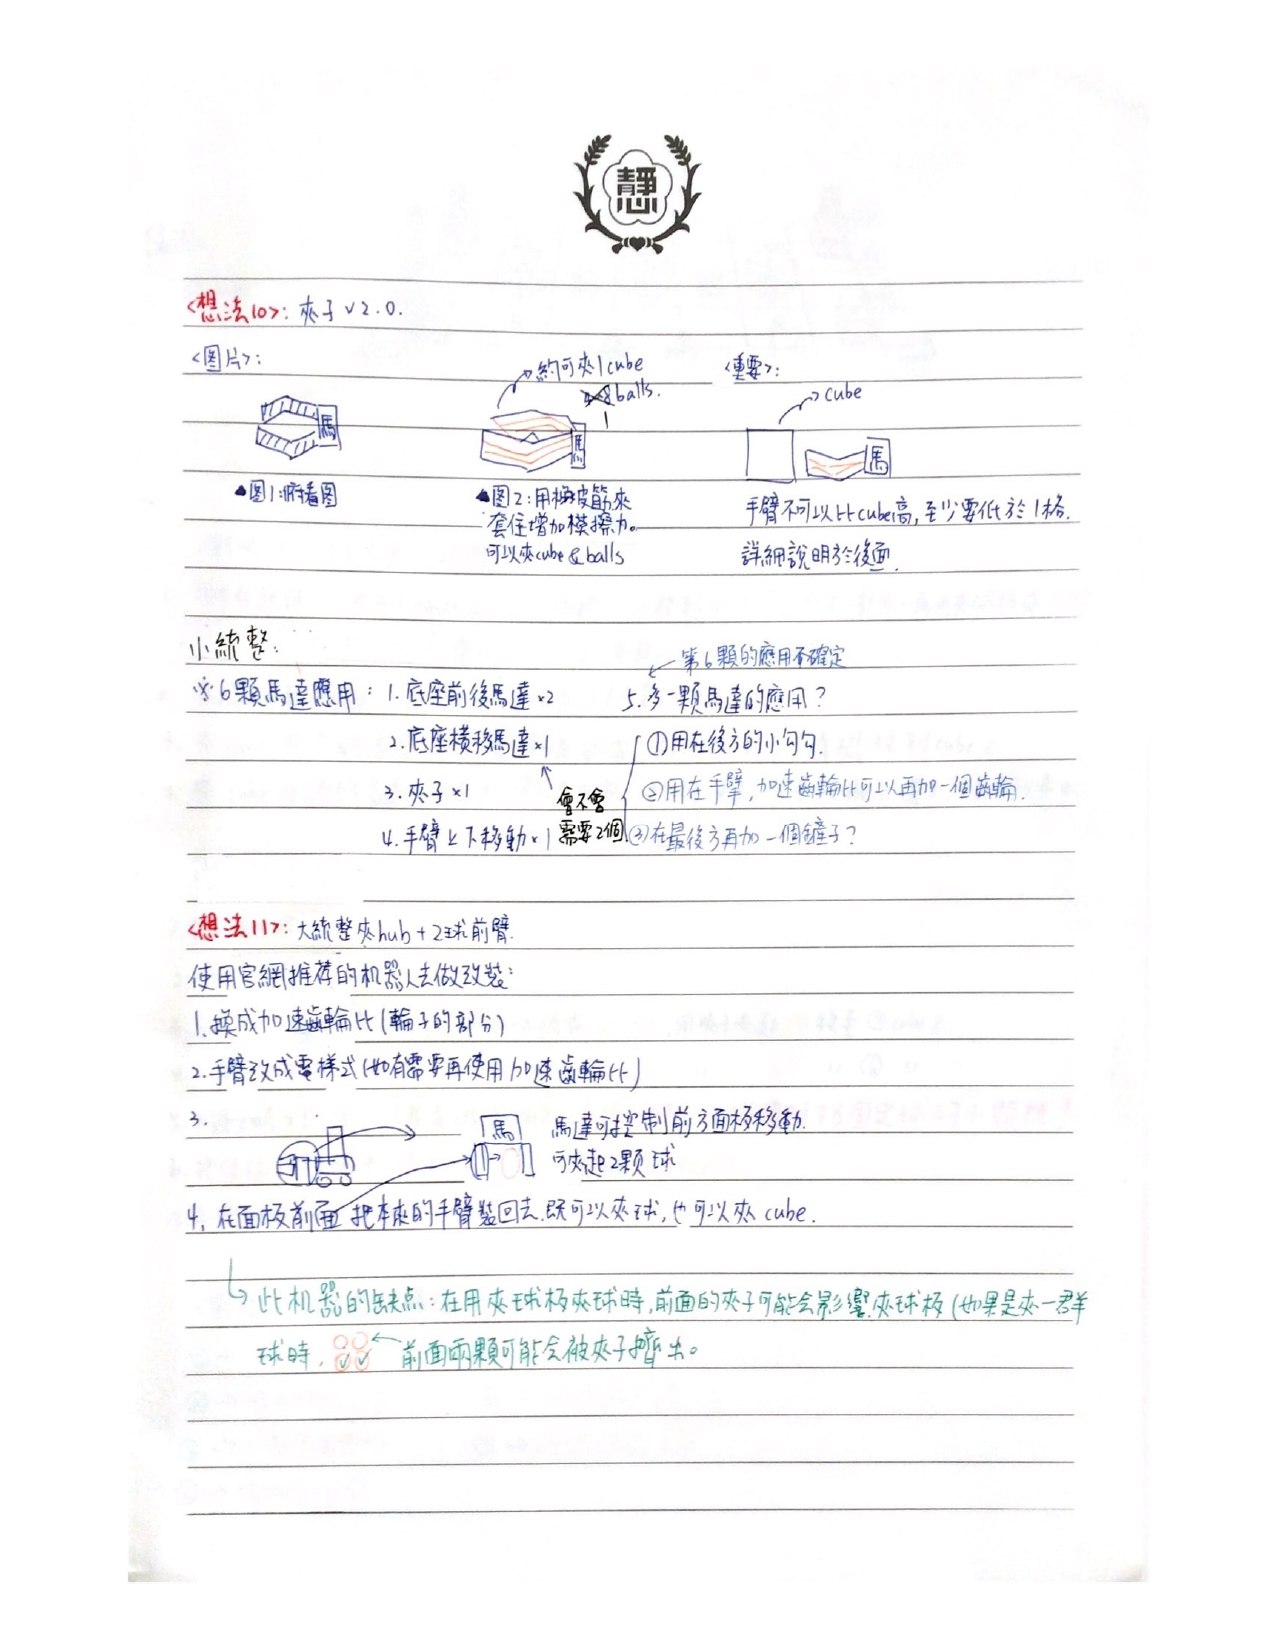 靜心
<想法10>: 夾子 v2.0.
<圖片>:
約可夾1cube
8balls.
1
<重要>:
cube
馬
馬
馬
▲圖1:俯看圖
▲圖2:用橡皮筋來
套住增加摸擦力。
可以夾cube & balls
手臂不可以比cube高,至少要低於1格.
詳細說明於後面.
小統整:
※6顆馬達應用: 1.底座前後馬達×2
2.底座橫移馬達×1
3.夾子×1
4.手臂上下移動×1
會不會
需要2個
第6顆的應用不確定
5.多一顆馬達的應用?
①用在後方的小勾勾.
②用在手臂,加速齒輪比可以再加一個齒輪.
③在最後方再加一個鏟子?
<想法11>: 大統整夾hub+2球前臂.
使用官網推荐的机器人去做改裝:
1.換成加速齒輪比(輪子的部分)
2.手臂改成電樣式(如有需要再使用加速齒輪比)
3.
馬
馬達可控制前方面板移動.
可夾起2顆球
4.在面板前面把本來的手臂裝回去.既可以夾球,也可以夾cube.
此机器的缺点:在用夾球板夾球時,前面的夾子可能会影響夾球板(如果是夾一群
球時, 前面兩顆可能会被夾子擠出。